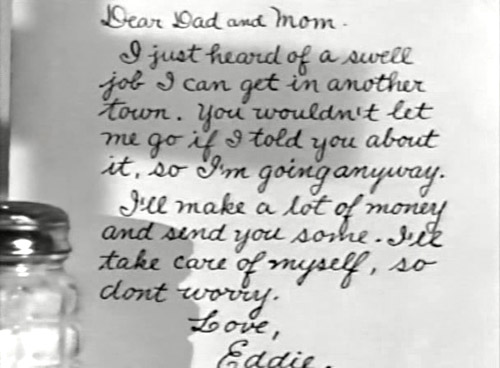 Dear Dad and Mom.
I just heard of a swell
job I can get in another
town. You wouldn't let
me go if I told you about
it, so I'm going anyway.
I'll make a lot of money
and send you some. I'll
take care of myself, so
dont worry.
Love,
Eddie.